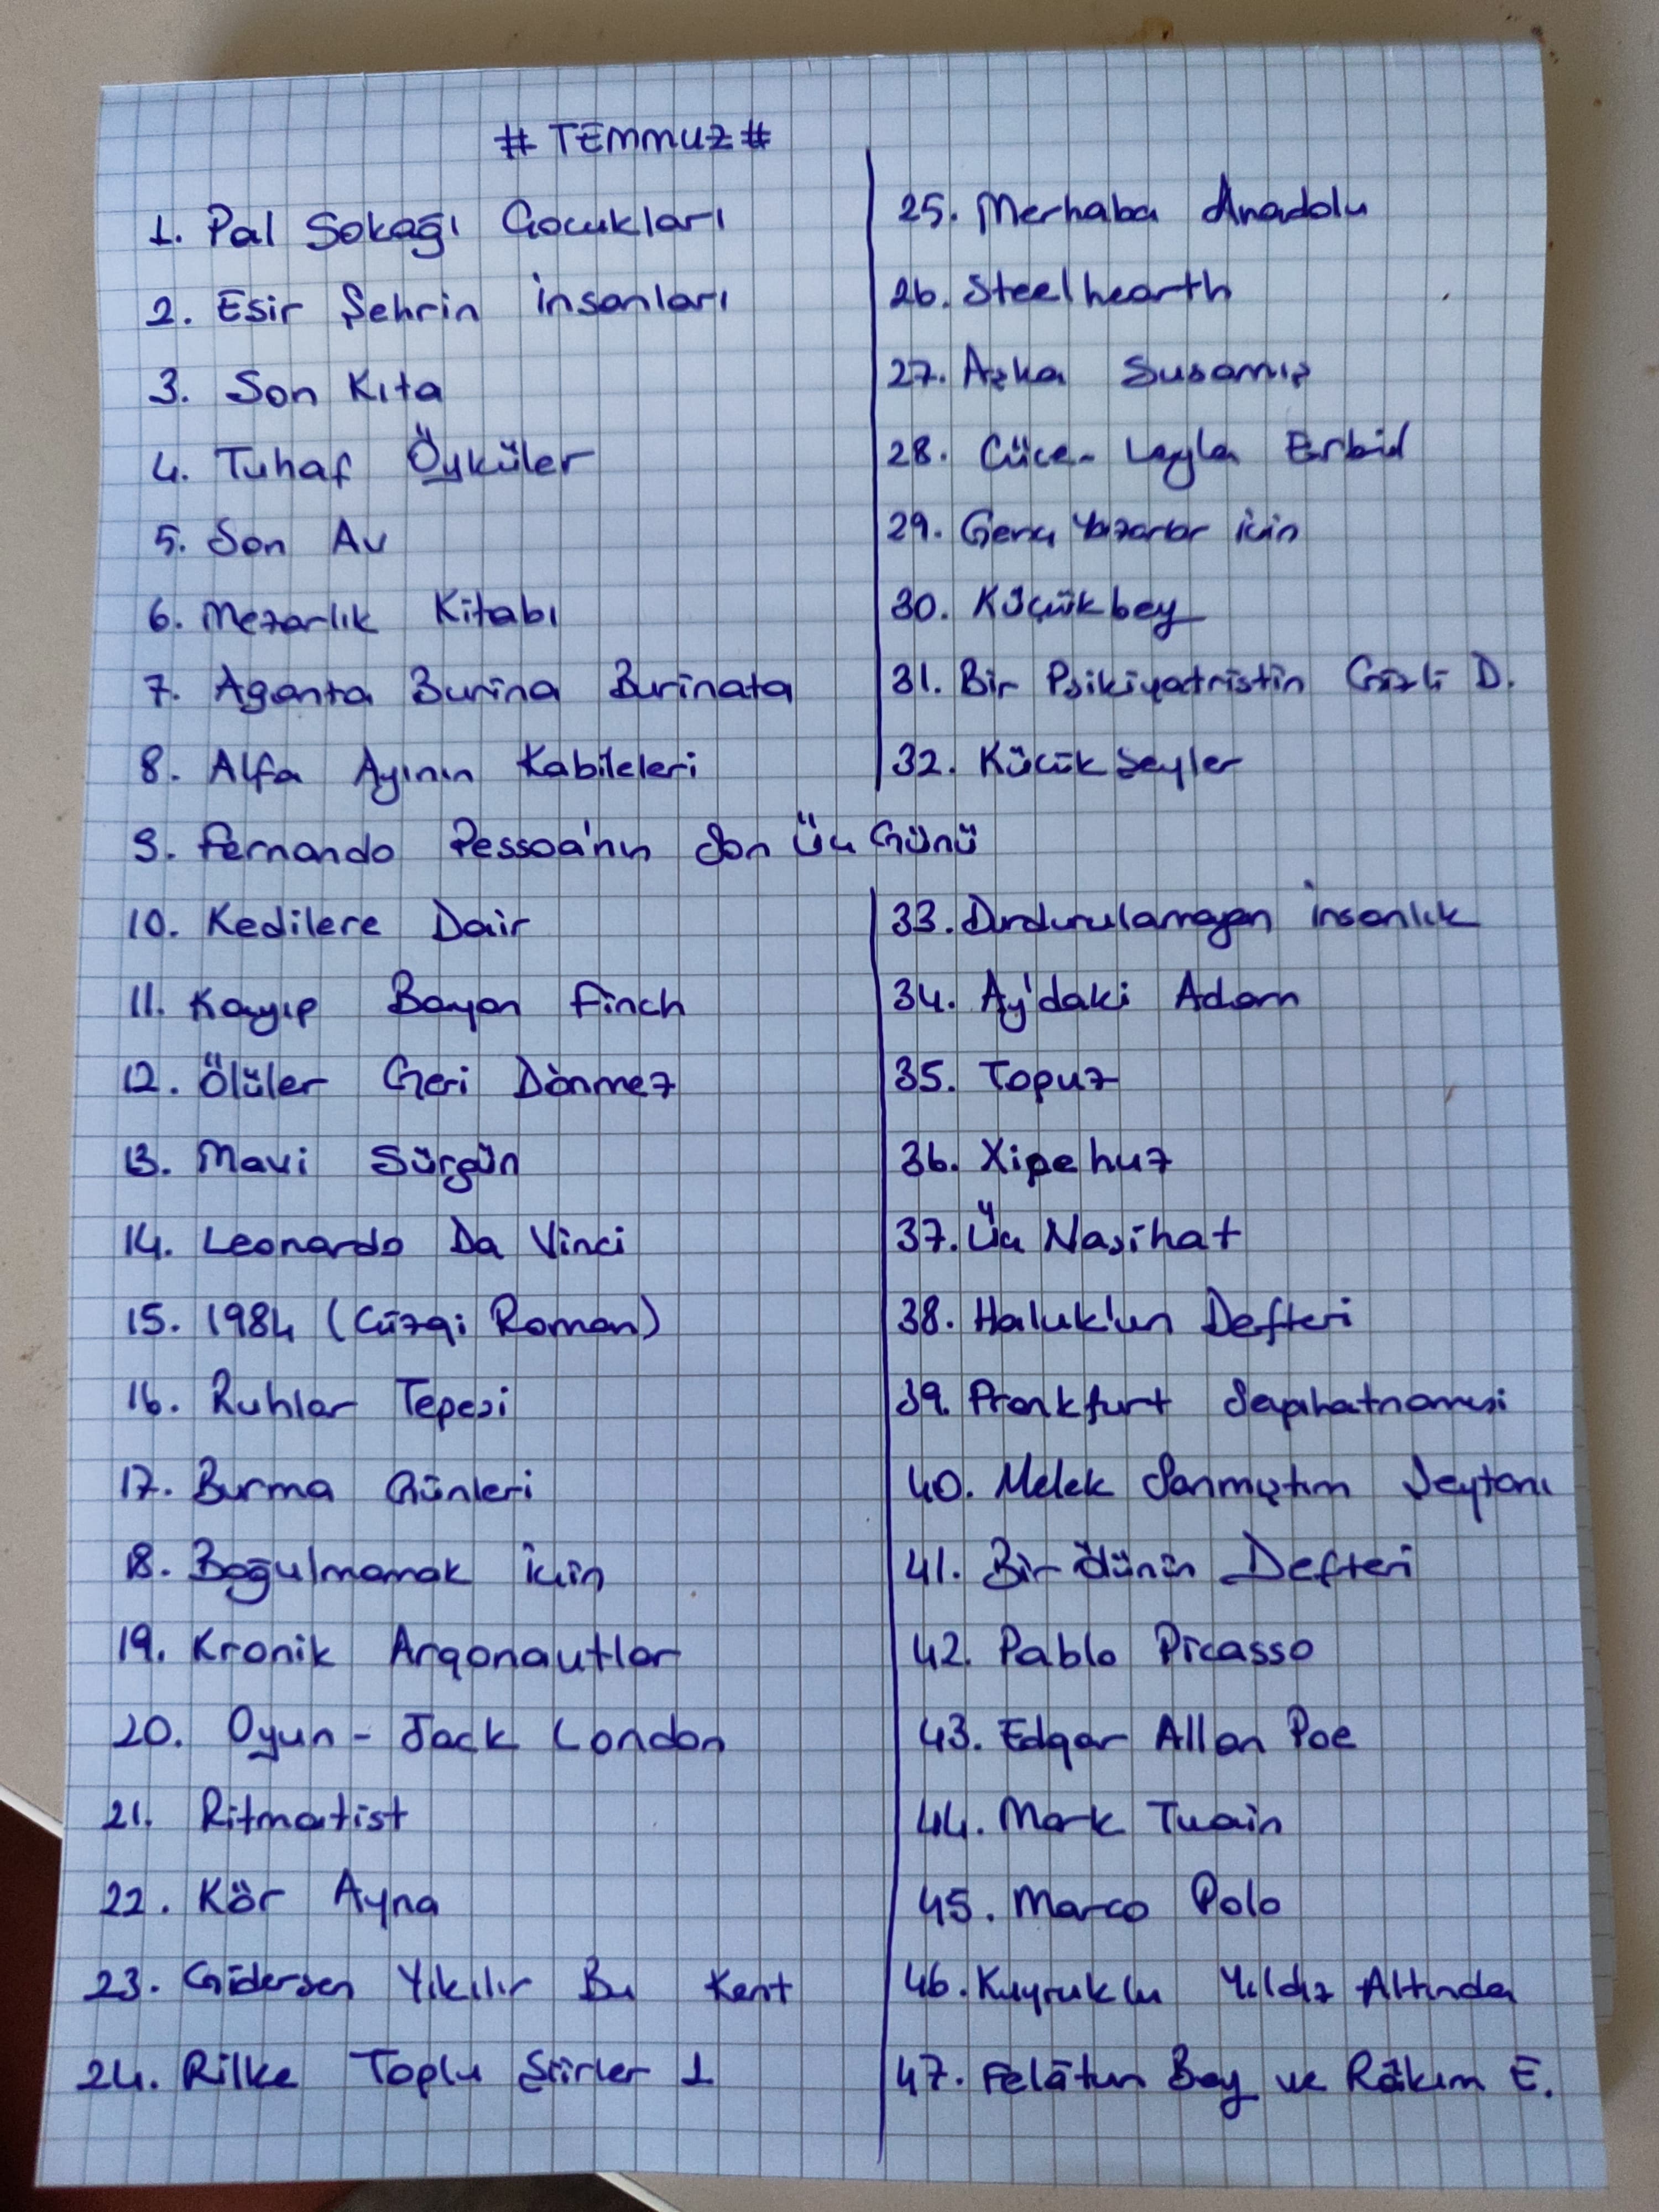 # TEMMUZ #
1. Pal Sokağı Çocukları
2. Esir Şehrin İnsanları
3. Son Kıta
4. Tuhaf Öyküler
5. Son Av
6. Mezarlık Kitabı
7. Aganta Burina Burinata
8. Alfa Ayının Kabileleri
9. Fernando Pessoa'nın Son Üç Günü
10. Kedilere Dair
11. Kayıp Bayan Finch
12. Ölüler Geri Dönmez
13. Mavi Sürgün
14. Leonardo Da Vinci
15. 1984 (Çizgi Roman)
16. Ruhlar Tepesi
17. Burma Günleri
18. Boğulmamak İçin
19. Kronik Argonautlar
20. Oyun - Jack London
21. Ritmatist
22. Kör Ayna
23. Gidersen Yıkılır Bu Kent
24. Rilke Toplu Şiirler 1
25. Merhaba Anadolu
26. Steelhearth
27. Aşka Susamış
28. Cüce - Leyla Erbil
29. Genç Yazarlar İçin
30. Küçükbey
31. Bir Psikiyatristin Gizli D.
32. Küçük Şeyler
33. Durdurulamayan İnsanlık
34. Ay'daki Adam
35. Topuz
36. Xipehuz
37. Üç Nasihat
38. Haluk'un Defteri
39. Frankfurt Seyahatnamesi
40. Melek Sanmıştım Şeytanı
41. Bir Ölünün Defteri
42. Pablo Picasso
43. Edgar Allan Poe
44. Mark Twain
45. Marco Polo
46. Kuyruklu Yıldız Altında
47. Felâtun Bey ve Râkım E.